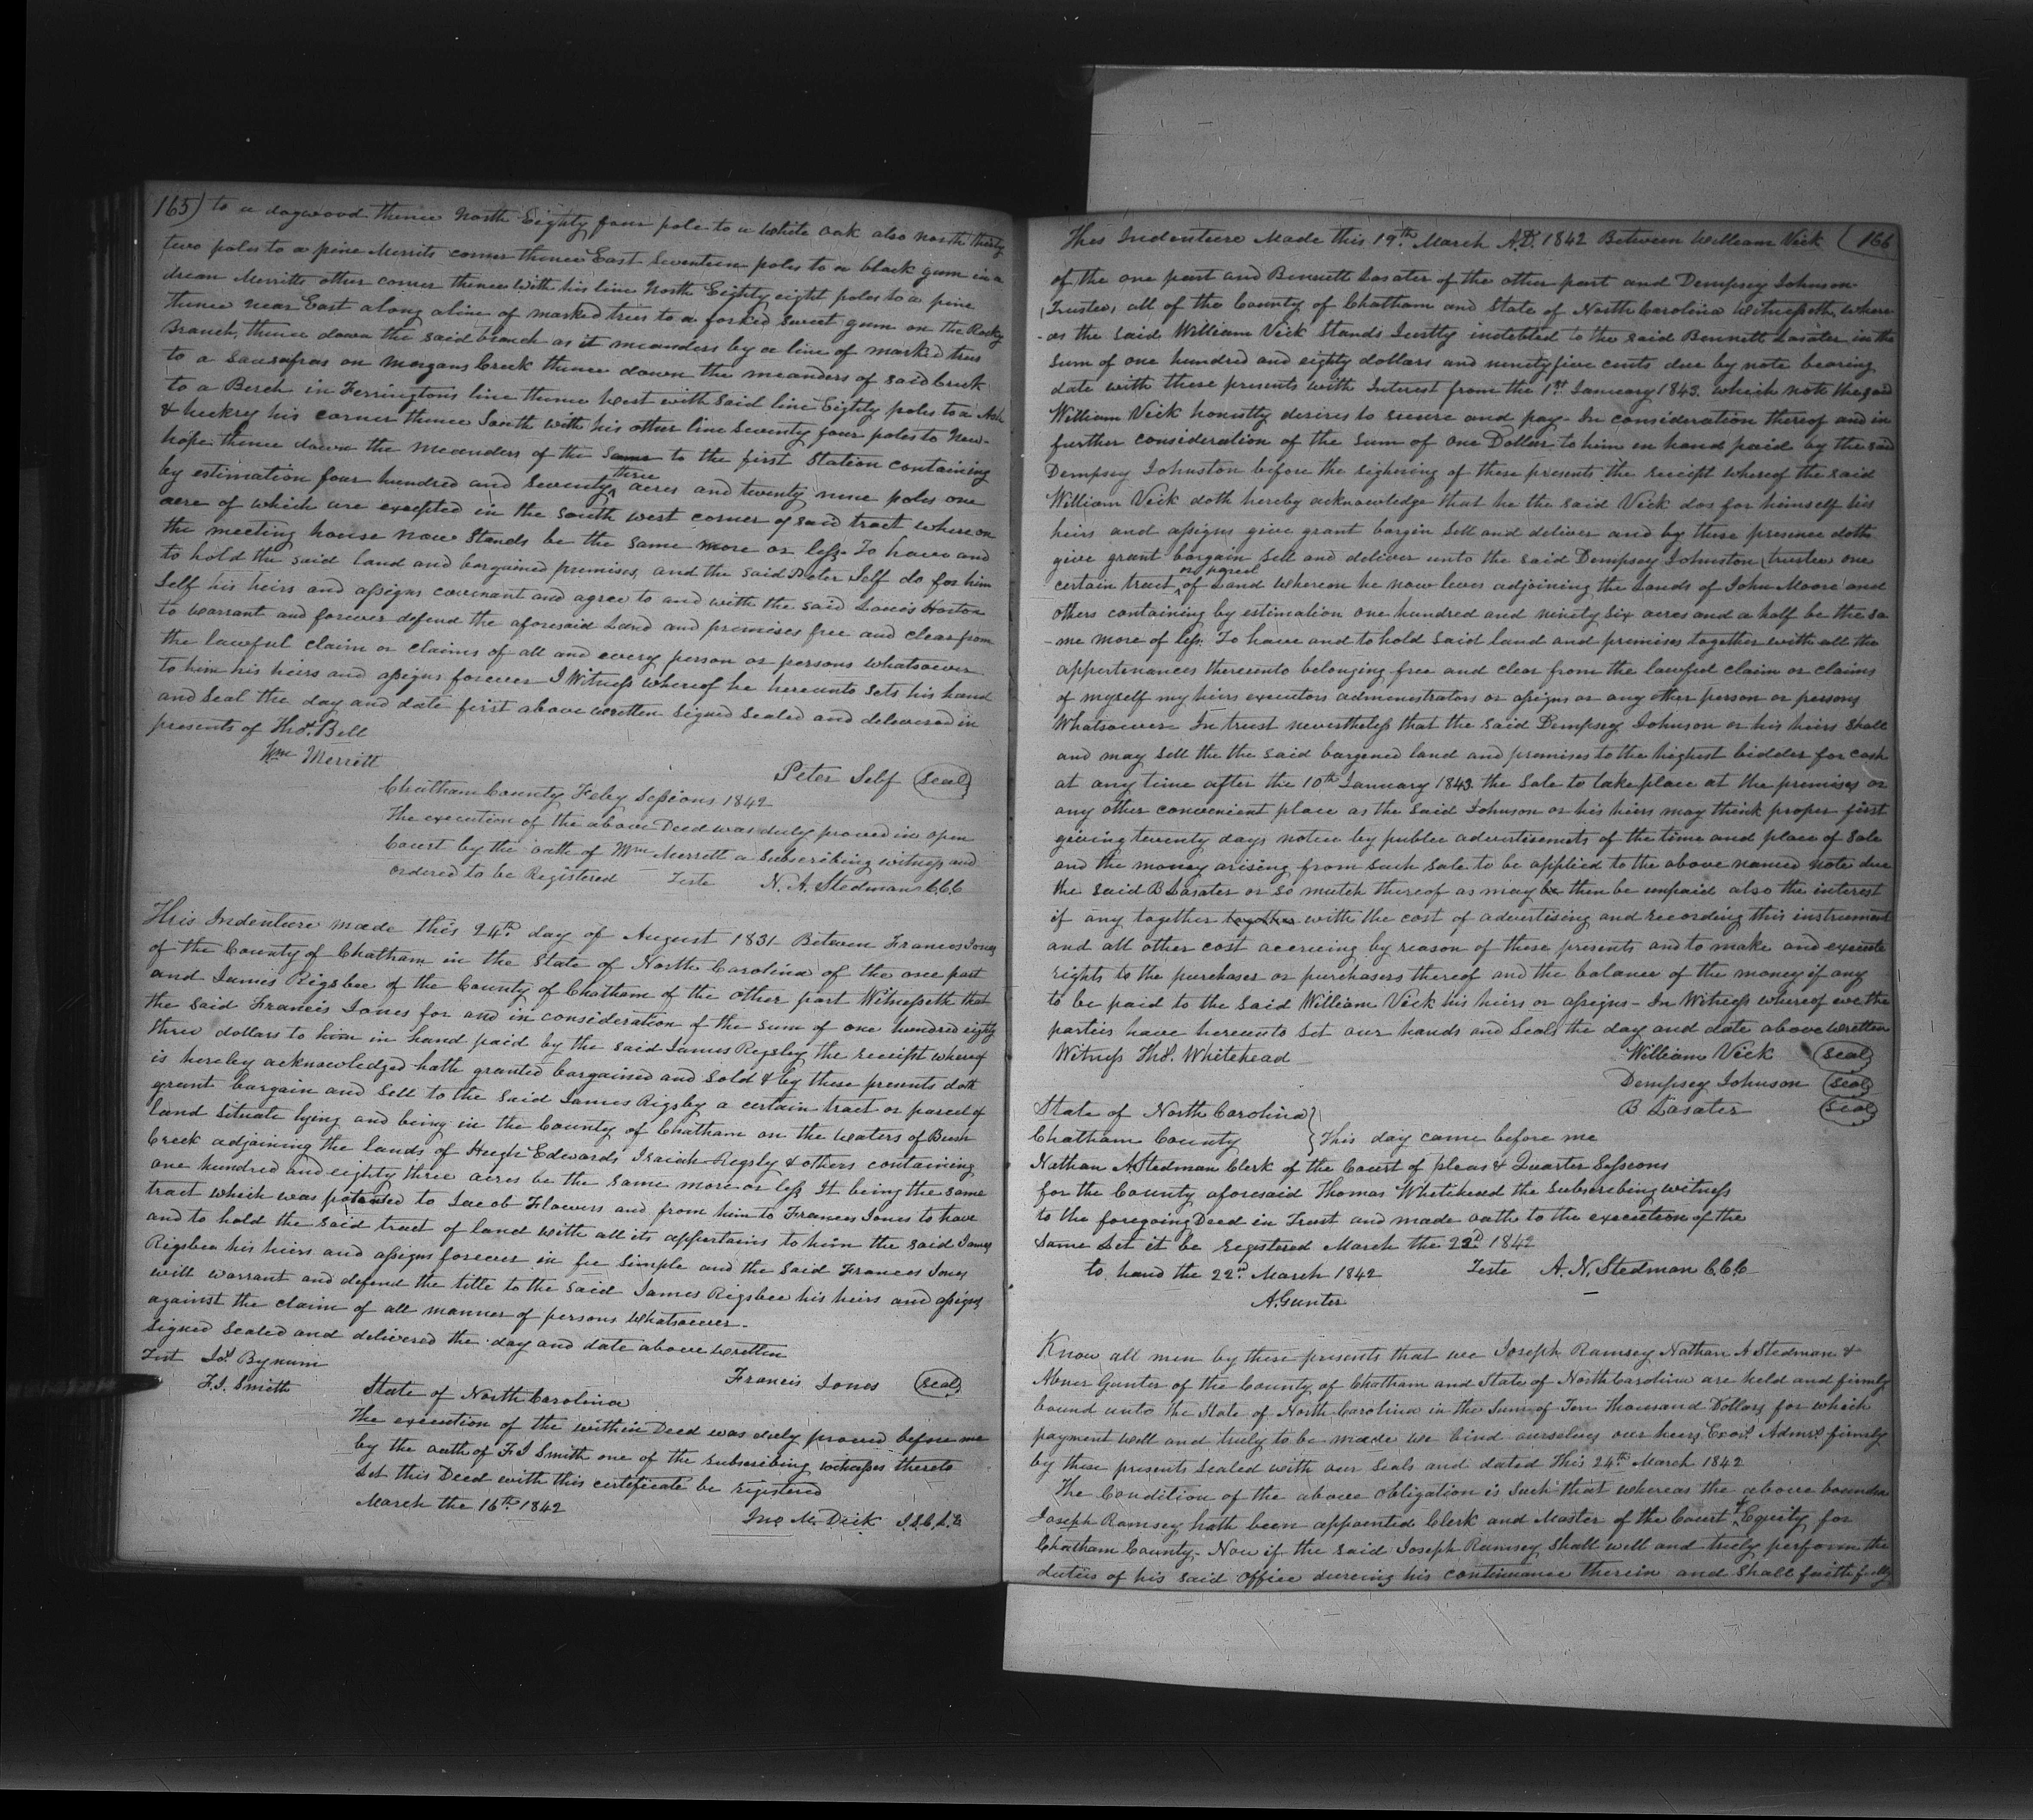 165) to a dogwood thence North Eighty four pole to a White oak also north thirty
two poles to a pine Merrits corner thence East Seventeen poles to a black gum in a
drean Merritts other corner thence with his line North Eighty eight poles to a pine
thence near East along a line of marked trees to a forked sweet gum on the Rocky
Branch, thence down the said branch as it meanders by a line of marked trees
to a Sausafras on Morgans Creek thence down the meanders of said Creek
to a Berch in Ferringtons line thence West with said line Eighty poles to a Ash
& heckry his corner thence South with his other line Seventy four poles to New-
hope thence down the meanders of the same to the first Station containing
by estimation four hundred and Seventy three acres and twenty nine poles one
acre of which are excepted in the South west corner of said tract whereon
the meeting house now Stands be the same more or less. To have and
to hold the said land and bargained premises, and the said Peter Self do for him
Self his heirs and assigns covenant and agree to and with the said Lewis Horton
to warrant and forever defend the aforesaid Land and premises free and clear from
the lawful claim or claims of all and every person or persons whatsoever
to him his heirs and assigns forever I Witness whereof he hereunto sets his hand
and Seal the day and date first above written Signed Sealed and delivered in
presents of Thos. Bell
Wm Merritt
Peter Self (Seal)
Chatham County Feby Sessions 1842
The execution of the above Deed was duly proved in open
Court by the oath of Wm Merritt a Subscribing witness and
ordered to be Registered Teste N. A. Stedman C.C.C
This Indenture made this 24th day of August 1831 Between Frances Jones
of the County of Chatham in the State of North Carolina of the one part
and James Rigsbee of the County of Chatham of the other part Witnesseth that
the said Francis Jones for and in consideration of the sum of one hundred eighty
three dollars to him in hand paid by the said James Regsby the receipt whereof
is hereby acknowledged hath granted bargained and Sold & by these presents doth
grant bargain and Sell to the Said James Rigsby a certain tract or parcel of
land Situate lying and being in the County of Chatham on the Waters of Bush
Creek adjoining the lands of Hugh Edwards Isaiah Regsby & others containing
one hundred and eighty three acres be the same more or less It being the same
tract which was patented to Jacob Flowers and from him to Frances Jones to have
and to hold the said tract of land with all its appertains to him the said James
Rigsbee his heirs and assigns forever in fee simple and the said Frances Jones
will warrant and defend the title to the said James Rigsbee his heirs and assigns
against the claim of all manner of persons whatsoever.
Signed Sealed and delivered the day and date above written
Test Jos. Bynum
F. J. Smith Francis Jones (Seal)
State of North Carolina
The execution of the within Deed was duly proved before me
by the oath of F J Smith one of the subscribing witnesses thereto
Let this Deed with this certificate be registered
March the 16th 1842
Jno M. Dick J.S.C.L.E
Thes Indenture Made this 19th March A.D. 1842 Between William Vick (166
of the one part and Bennett Lasater of the other part and Dempsey Johnson
(Trustee) all of the County of Chatham and State of North Carolina Witnesseth, where
-as the said William Vick Stands Justly indebted to the said Bennett Lasater in the
Sum of one hundred and eighty dollars and ninety five cents due by note bearing
date with these presents with Interest from the 1st January 1843. which note the said
William Vick honestly desires to secure and pay. In consideration thereof and in
further consideration of the Sum of one Dollar to him in hand paid by the said
Dempsey Johnston before the sighning of these presents the receipt whereof the said
William Vick doth hereby acknowledge that he the said Vick dos for himself his
heirs and assigns give grant bargin Sell and deliver and by these presence doth
give grant bargain Sell and deliver unto the said Dempsey Johnston (trustee one
certain tract or parcel of Land whereon he now leves adjoining the Lands of John Moore and
others containing by estimation one hundred and ninety six acres and a half be the sa
-me more of less. To have and to hold said land and premises together with all the
appertinances thereunto belonging free and clear from the lawful claim or claims
of myself my heirs executors administrators or assigns or any other person or persons
Whatsoever In trust nevertheless that the said Dempsey Johnson or his heirs Shall
and may sell the the said bargened land and premises to the highest bidder for cash
at any time after the 10th January 1843 the Sale to take place at the premises or
any other convenient place as the said Johnson or his heirs may think proper first
giving twenty days notice by public advertisemets of the time and place of Sale
and the money arising from such Sale to be applied to the above named note due
the said B Lasater or so mutch thereof as may be then be unpaid also the interest
if any together together with the cost of advertising and recording this instrument
and all other cost accruing by reason of these presents and to make and execute
rights to the purchaser or purchasers thereof and the balance of the money if any
to be paid to the said William Vick his heirs or assigns - In Witness whereof we the
parties have hereunto set our hands and Seals the day and date above written
Witness Thos. Whitehead William Vick (Seal)
Dempsey Johnson (Seal)
B Lasater (Seal)
State of North Carolina }
Chatham County } This day came before me
Nathan A Stedman Clerk of the Court of pleas & Quarter Sessions
for the County aforesaid Thomas Whitehead the Subscribing witness
to the foregoing Deed in Trust and made oath to the execution of the
same Let it be registered March the 22d 1842
to hand the 22nd March 1842 Teste A. N. Stedman C.C.C
A. Gunter
Know all men by these presents that we Joseph Ramsey Nathan A Stedman &
Abner Gunter of the County of Chatham and State of North Carolina are held and firmly
bound unto the State of North Carolina in the Sum of Ten Thousand Dollars for which
payment well and truly to be made we bind ourselves our heirs Exors Admrs firmly
by these presents Sealed with our Seals and dated This 24th March 1842
The Condition of the above obligation is such that whereas the above bounden
Joseph Ramsey hath been appointed Clerk and Master of the Court of Equity for
Chatham County - Now if the said Joseph Ramsey Shall well and truly perform the
duties of his said office dureing his continuance therein and Shall faithfully